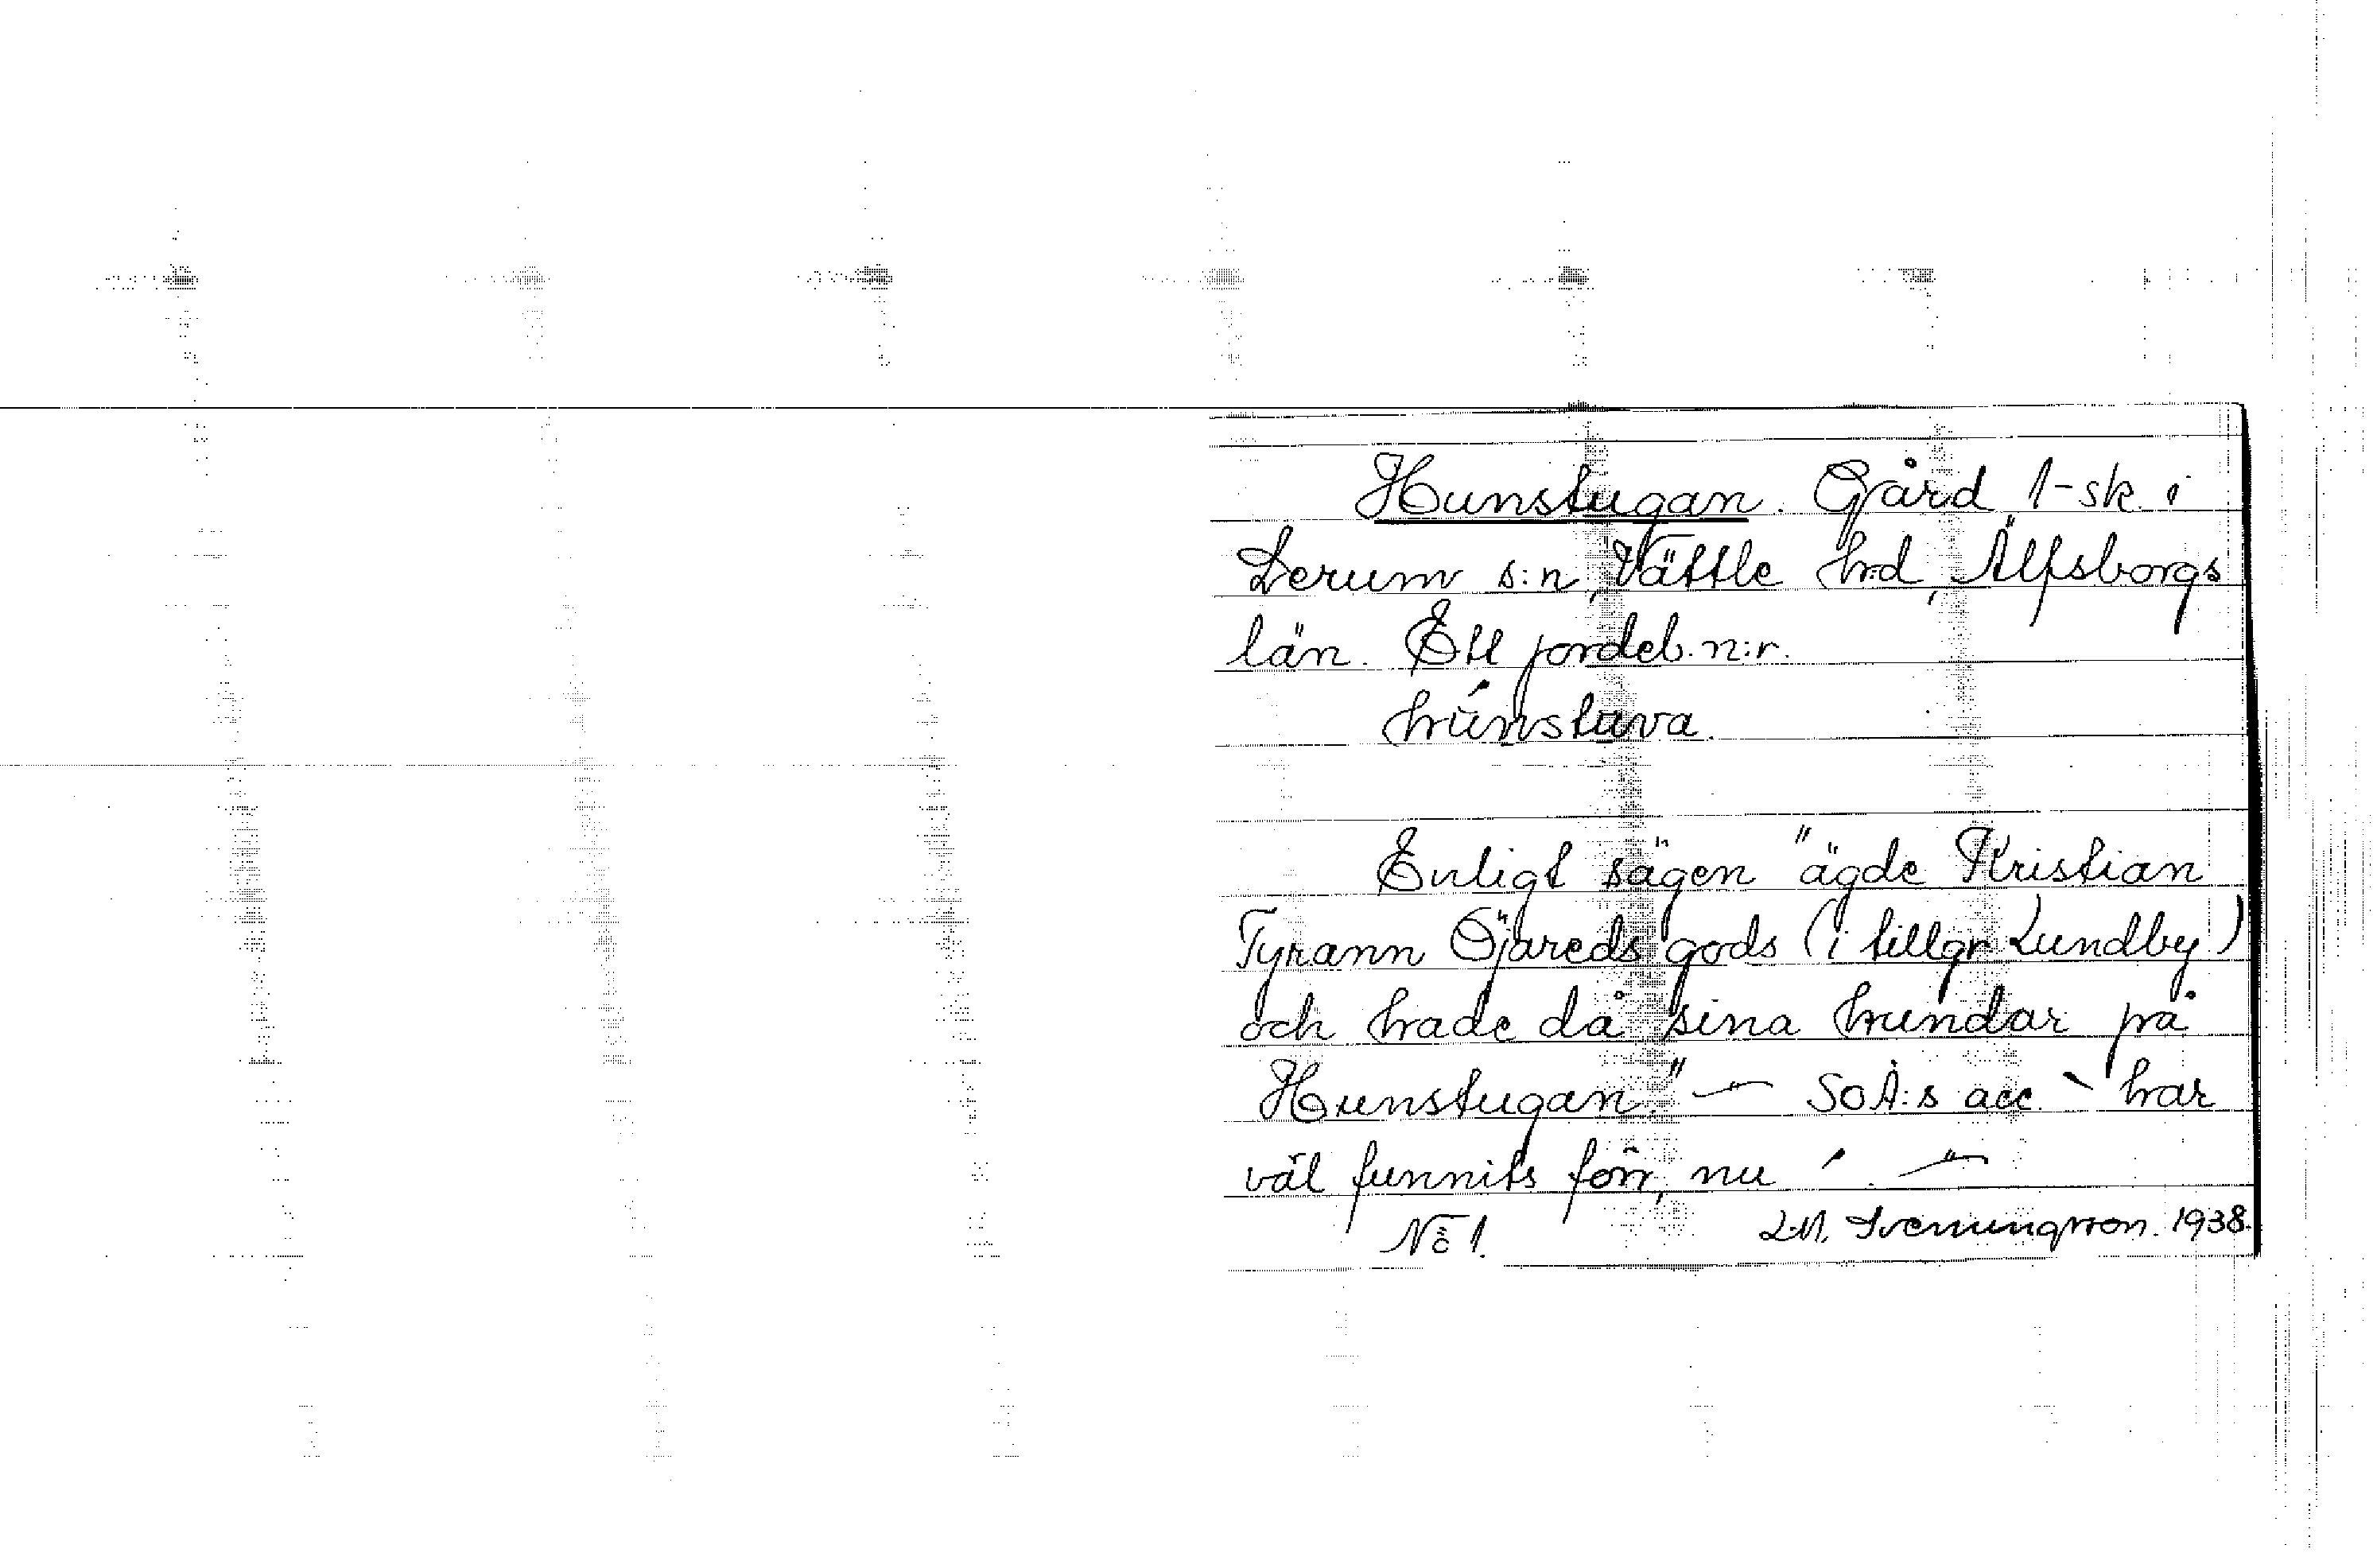 Hunstugan. Gård 1-sk. i
Lerum s:n, Vättle h:d, Älfsborgs
län. Ett jordeb. n:r.
húnstuva.
Enligt sägen "ägde Kristian
Tyrann Öjareds gods (i tillgr. Lundby)
och hade då sina hundar på
Hunstugan." — SOÅ:s acc. ` har
väl funnits förr, nu ´. —"—
No 1.
L.M. Svenungsson. 1938.